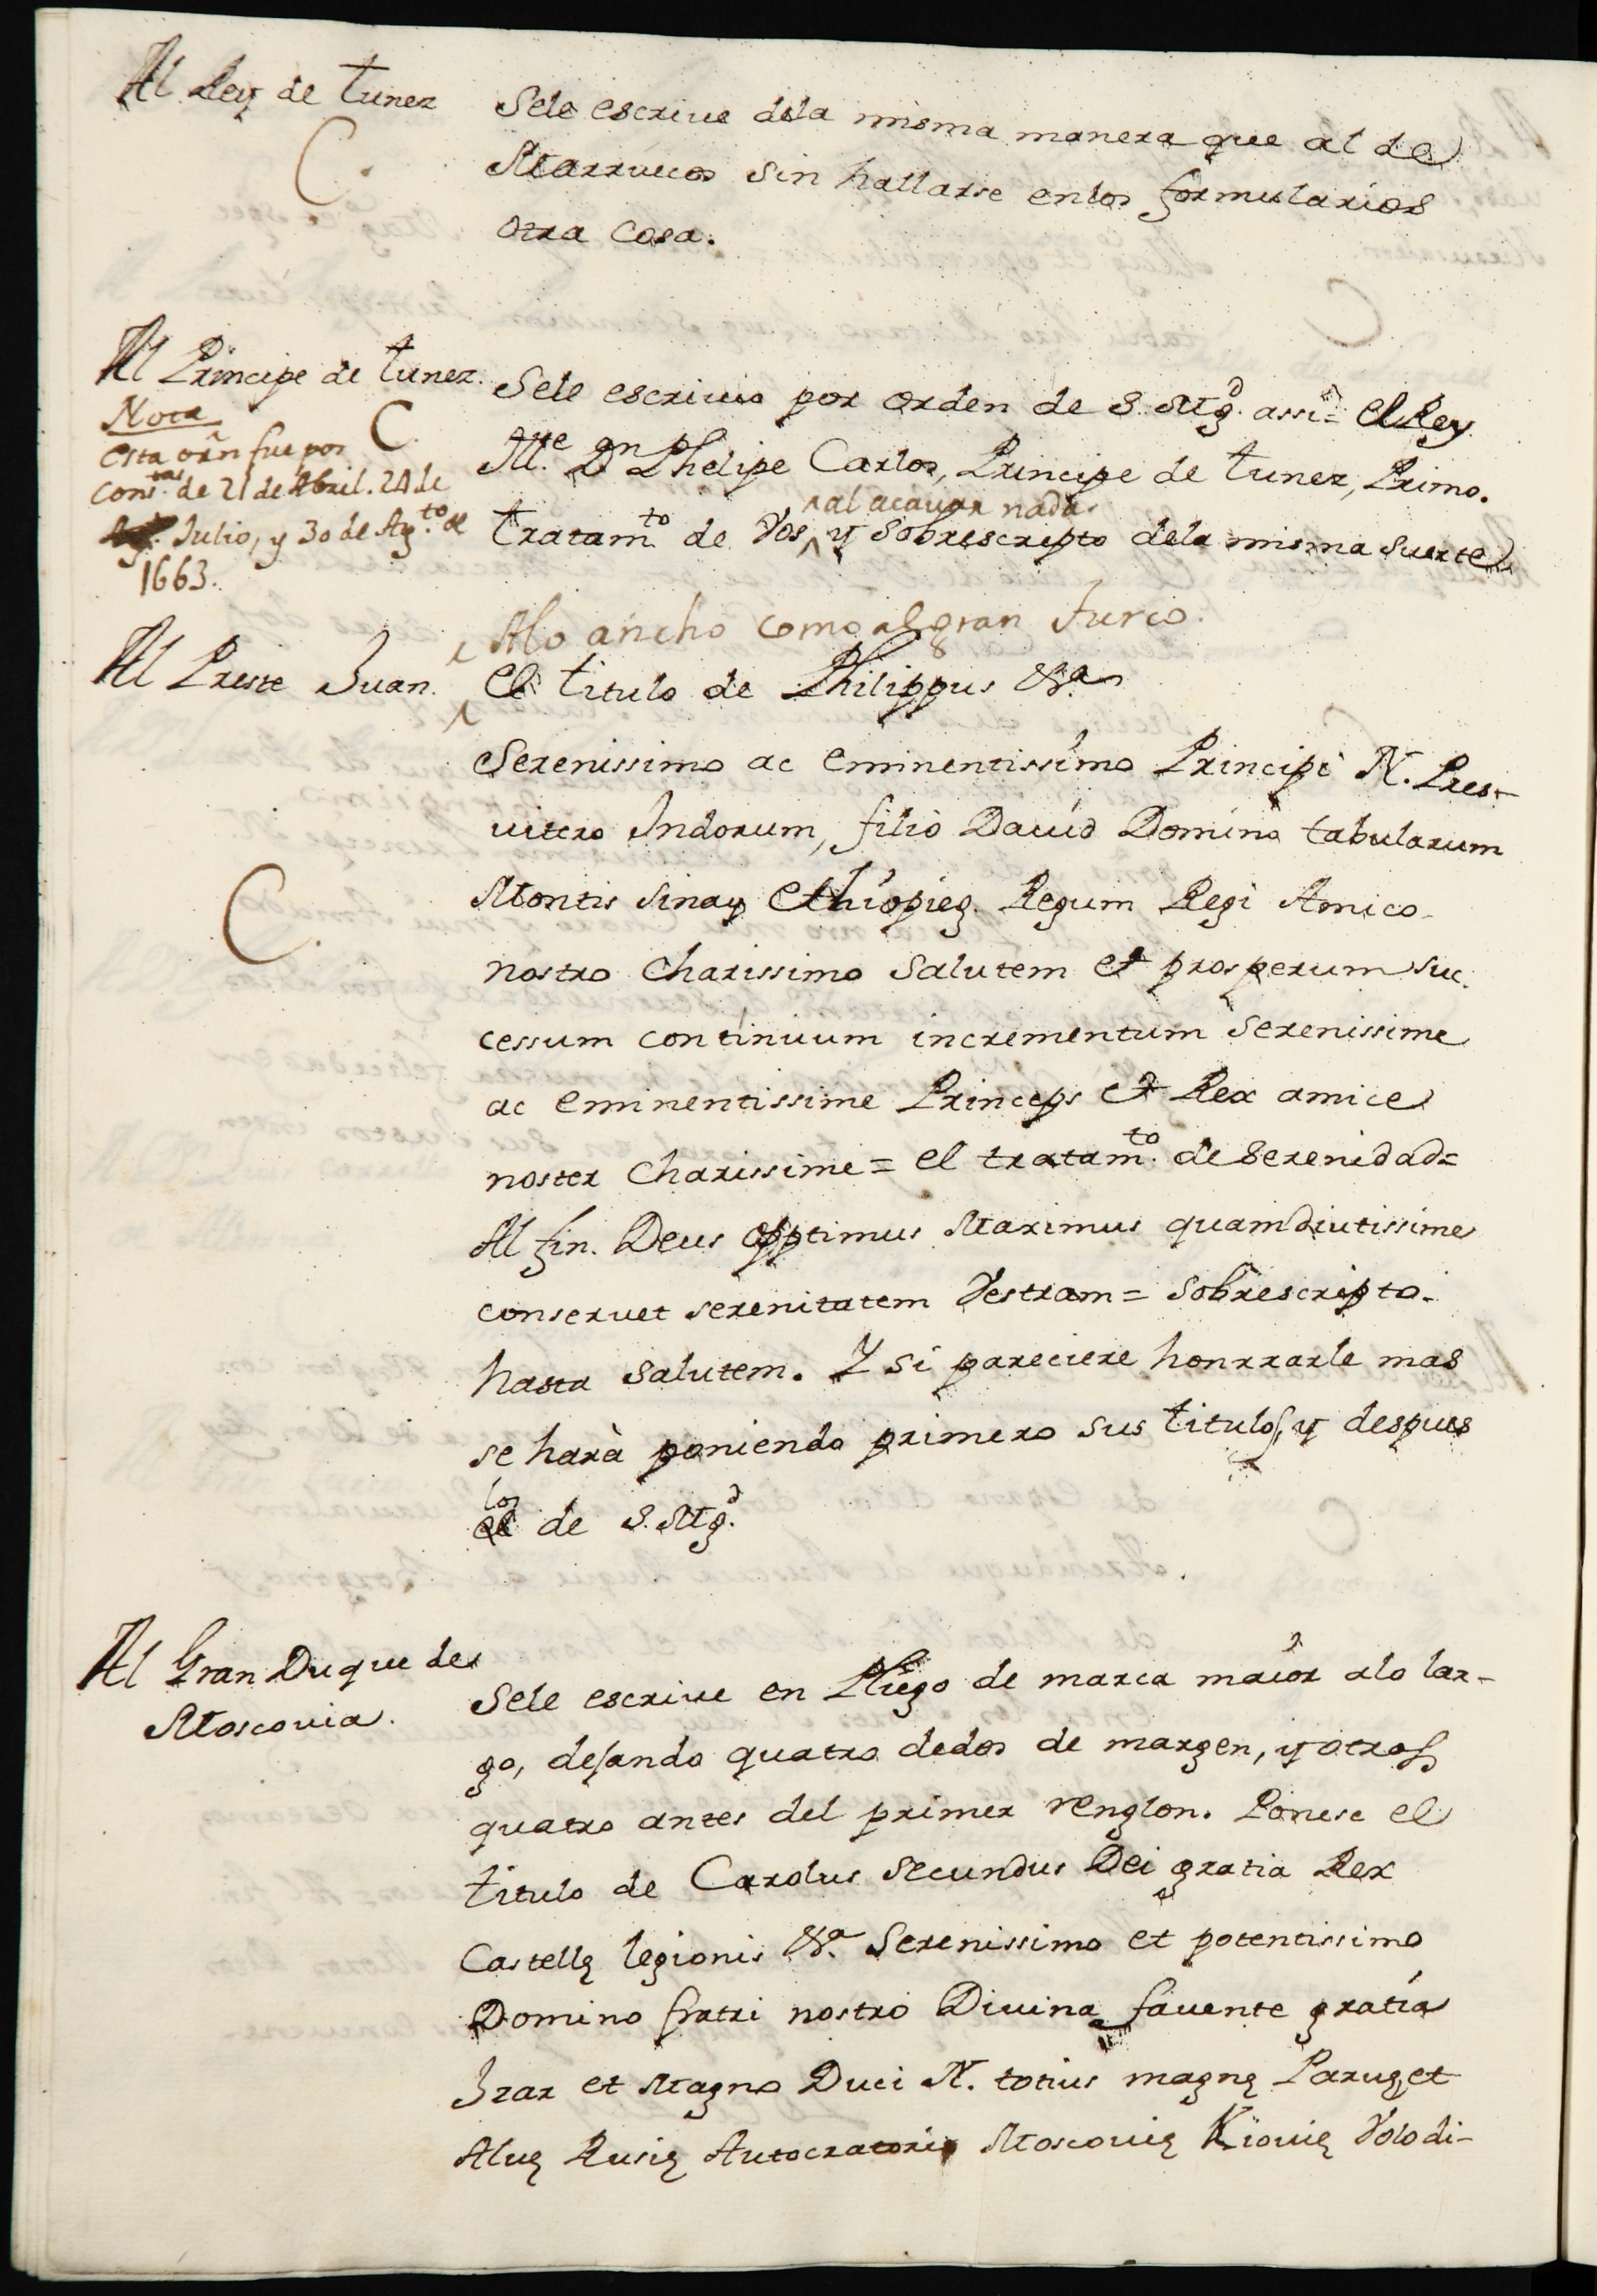 Al Rey de Tunez
C.
Sele escrive dela misma manera que al de
Marruecos sin hallarse enlos formularios
otra cosa.
Al Principe de Tunez.
Nota C.
esta orñ fue por
cons.tas de 21 de Abril. 24 de
Julio, y 30 de Ag.to de
1663.
Sele escriuio por orden de S. Mg.d assi = el Rey
Ill.e Dn Phelipe Carlos, Principe de Tunez, Primo.
^al acauar nada.
tratam.to de Vos ^ y sobrescripto dela misma suerte
Alo ancho como al gran Turco.
Al Preste Juan.
C.
El titulo de Philippus &.a
Serenissimo ac eminentissimo Principi N. Pres-
uitero Indorum, filio Dauid Domino tabularum
Montis Sinay Ethiopię. Regum Regi Amico
nostro Charissimo Salutem et prosperum suc.
cessum continuum incrementum Serenissime
ac eminentissime Princeps et Rex amice
noster Charissime = el tratam.to de Serenidad =
Al fin. Deus Opptimus Maximus quamdiutissime
conseruet serenitatem Vestram = Sobrescripto.
hasta Salutem. Y si pareciere honrrarle mas
se harà poniendo primero sus titulos, y despues
los
el de S. Mg.d
Al Gran Duque de
Moscouia.
Sele escriue en Pliego de marca maior alo lar-
go, dejando quatro dedos de margen, y otros
quatro antes del primer renglon. Ponese el
titulo de Carolus Secundus Dei gratia Rex
Castellę legionis &.a Serenissimo et potentissimo
Domino fratri nostro Diuina fauente gratia
Izar et Magno Duci N. totius magnę Paruę, et
Aluę Rusię Autocratori Moscouię Kiouię Volodi-